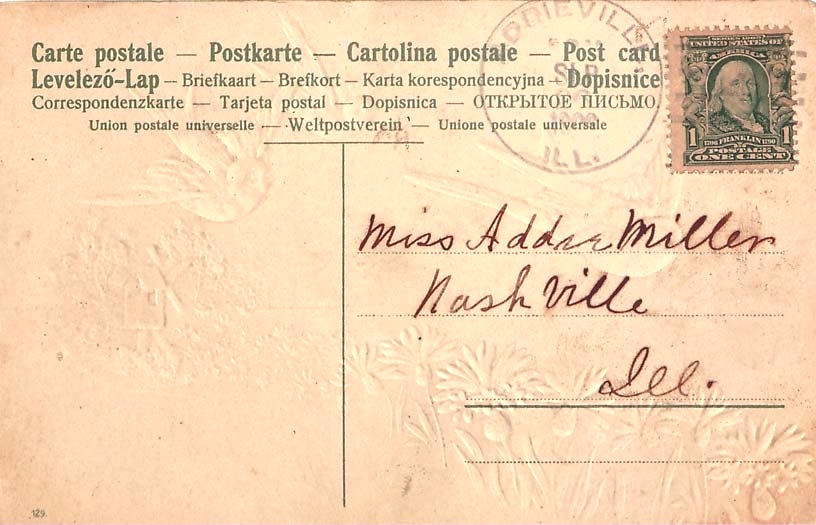 Carte postale — Postkarte — Cartolina postale — Post card
Levelező-Lap — Briefkaart — Brefkort — Karta korespondencyjna — Dopisnice
Correspondenzkarte — Tarjeta postal — Dopisnica — ОТКРЫТОЕ ПИСЬМО.
Union postale universelle — Weltpostverein — Unione postale universale
SEP
ILL.
SERIES 1902
UNITED STATES OF
AMERICA
1 1
1706 FRANKLIN 1790
POSTAGE
ONE CENT
Miss Addie Miller
Nashville
Ill.
129.